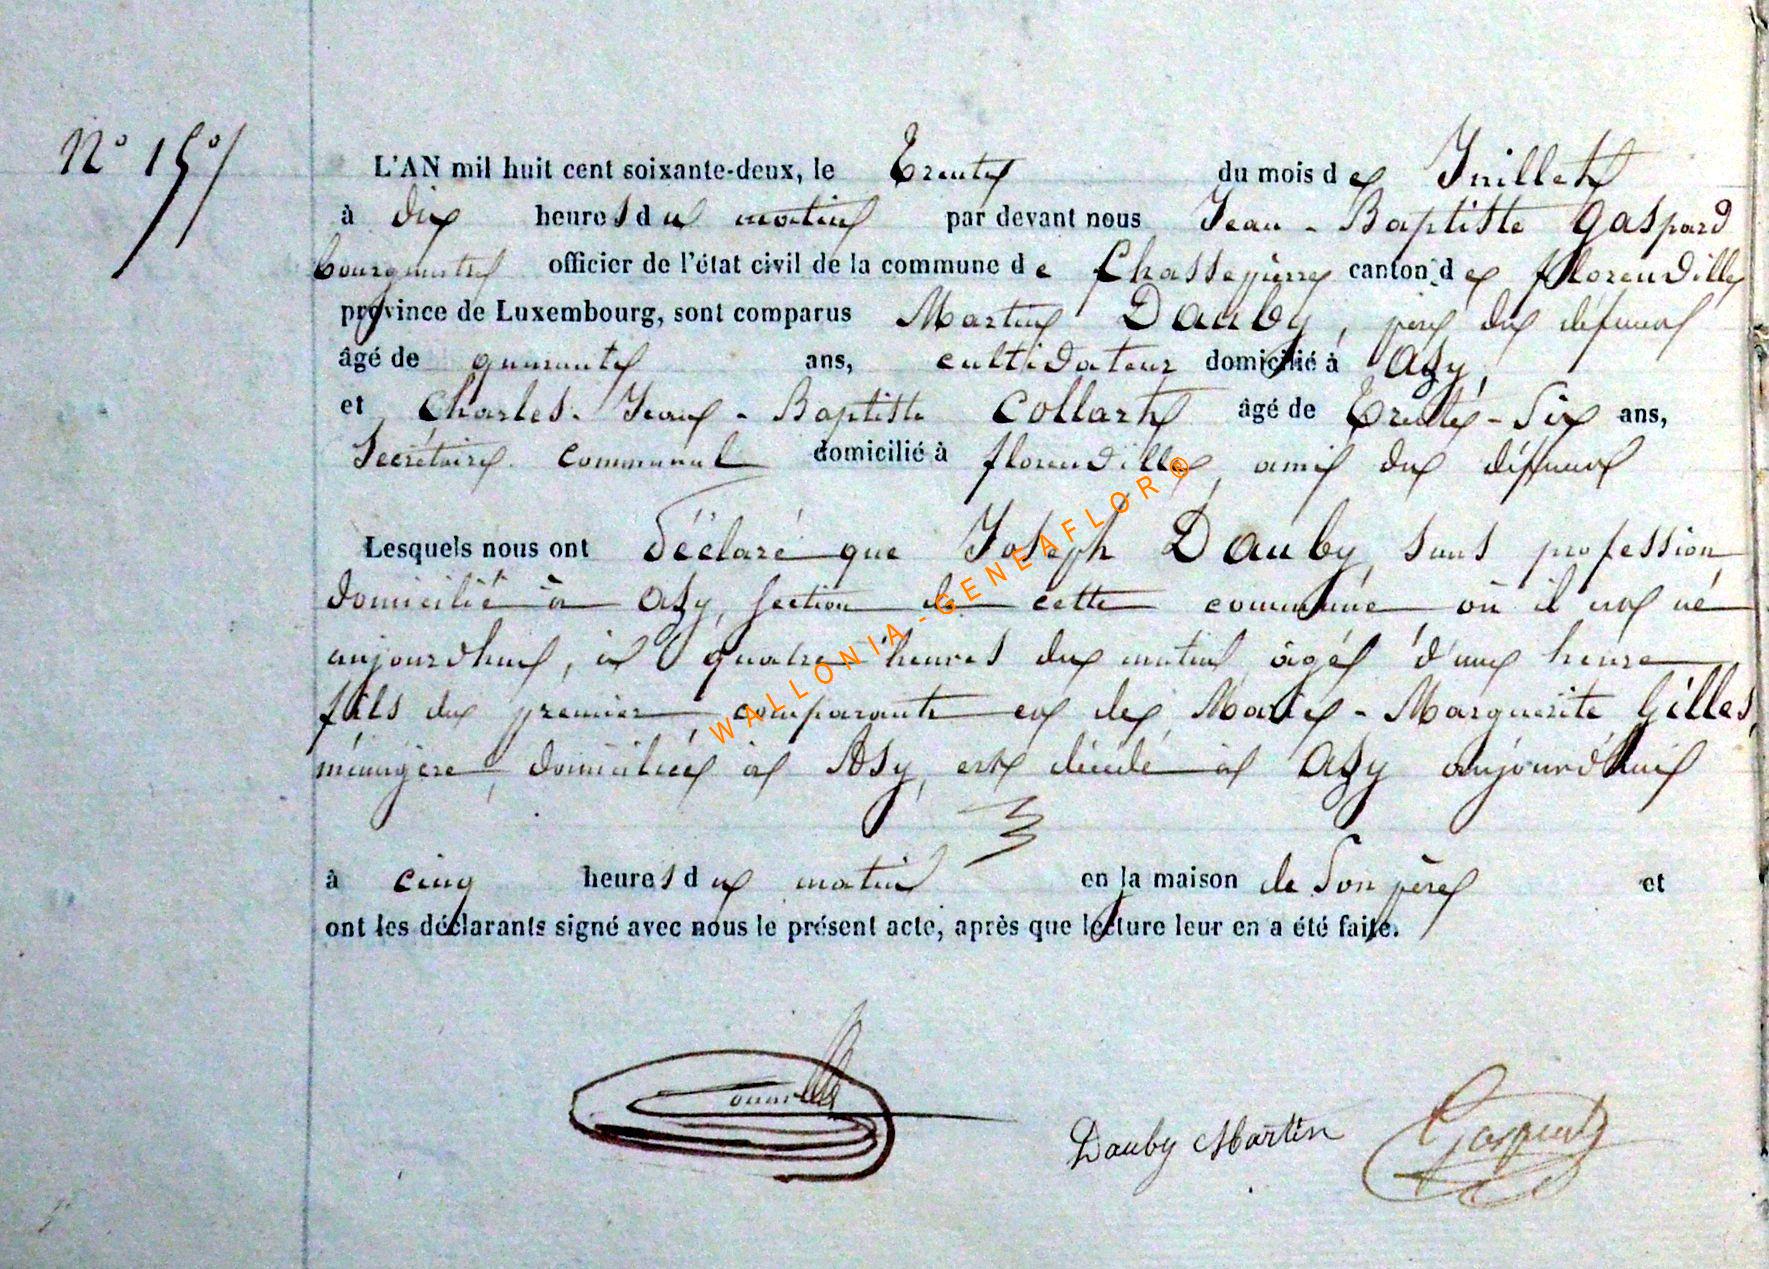 N° 15
L'AN mil huit cent soixante-deux, le Trente du mois de Juillet
à dix heures du matin par devant nous Jean-Baptiste Gaspard
bourgmestre officier de l'état civil de la commune de Chassepierre canton de florenville
province de Luxembourg, sont comparus Martin Dauby, père du défunt
âgé de quarante ans, cultivateur domicilié à Azy,
et Charles-Jean-Baptiste Collart âgé de Trente-Six ans,
Secrétaire communal domicilié à florenville, ami du défunt
Lesquels nous ont déclaré que Joseph Dauby, sans profession
domicilié à Azy, section de cette commune où il est né
aujourd'hui, à quatre heures du matin âgé d'une heure
fils du premier comparant et de Marie-Marguerite Gilles,
ménagère, domiciliée à Azy, est décédé à Azy aujourd'hui
à cinq heures du matin en la maison de Son père et
ont les déclarants signé avec nous le présent acte, après que lecture leur en a été faite.
Dauby Martin Gaspard
WALLONIA-GENEAFLOR®